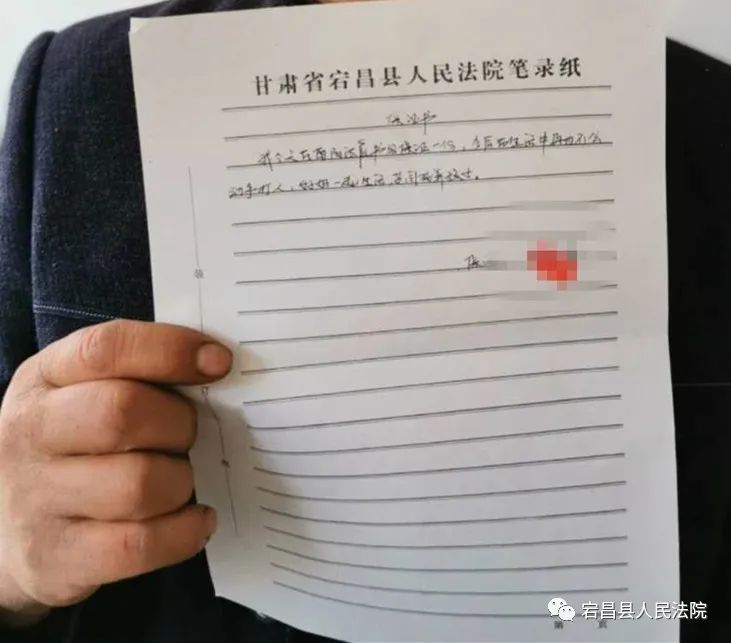 甘肃省宕昌县人民法院笔录纸
保证书
我今天在西固法庭书写保证一份，今后在生活中再也不会
动手打人，好好一起生活，共同
装
订
第 页
宕昌县人民法院